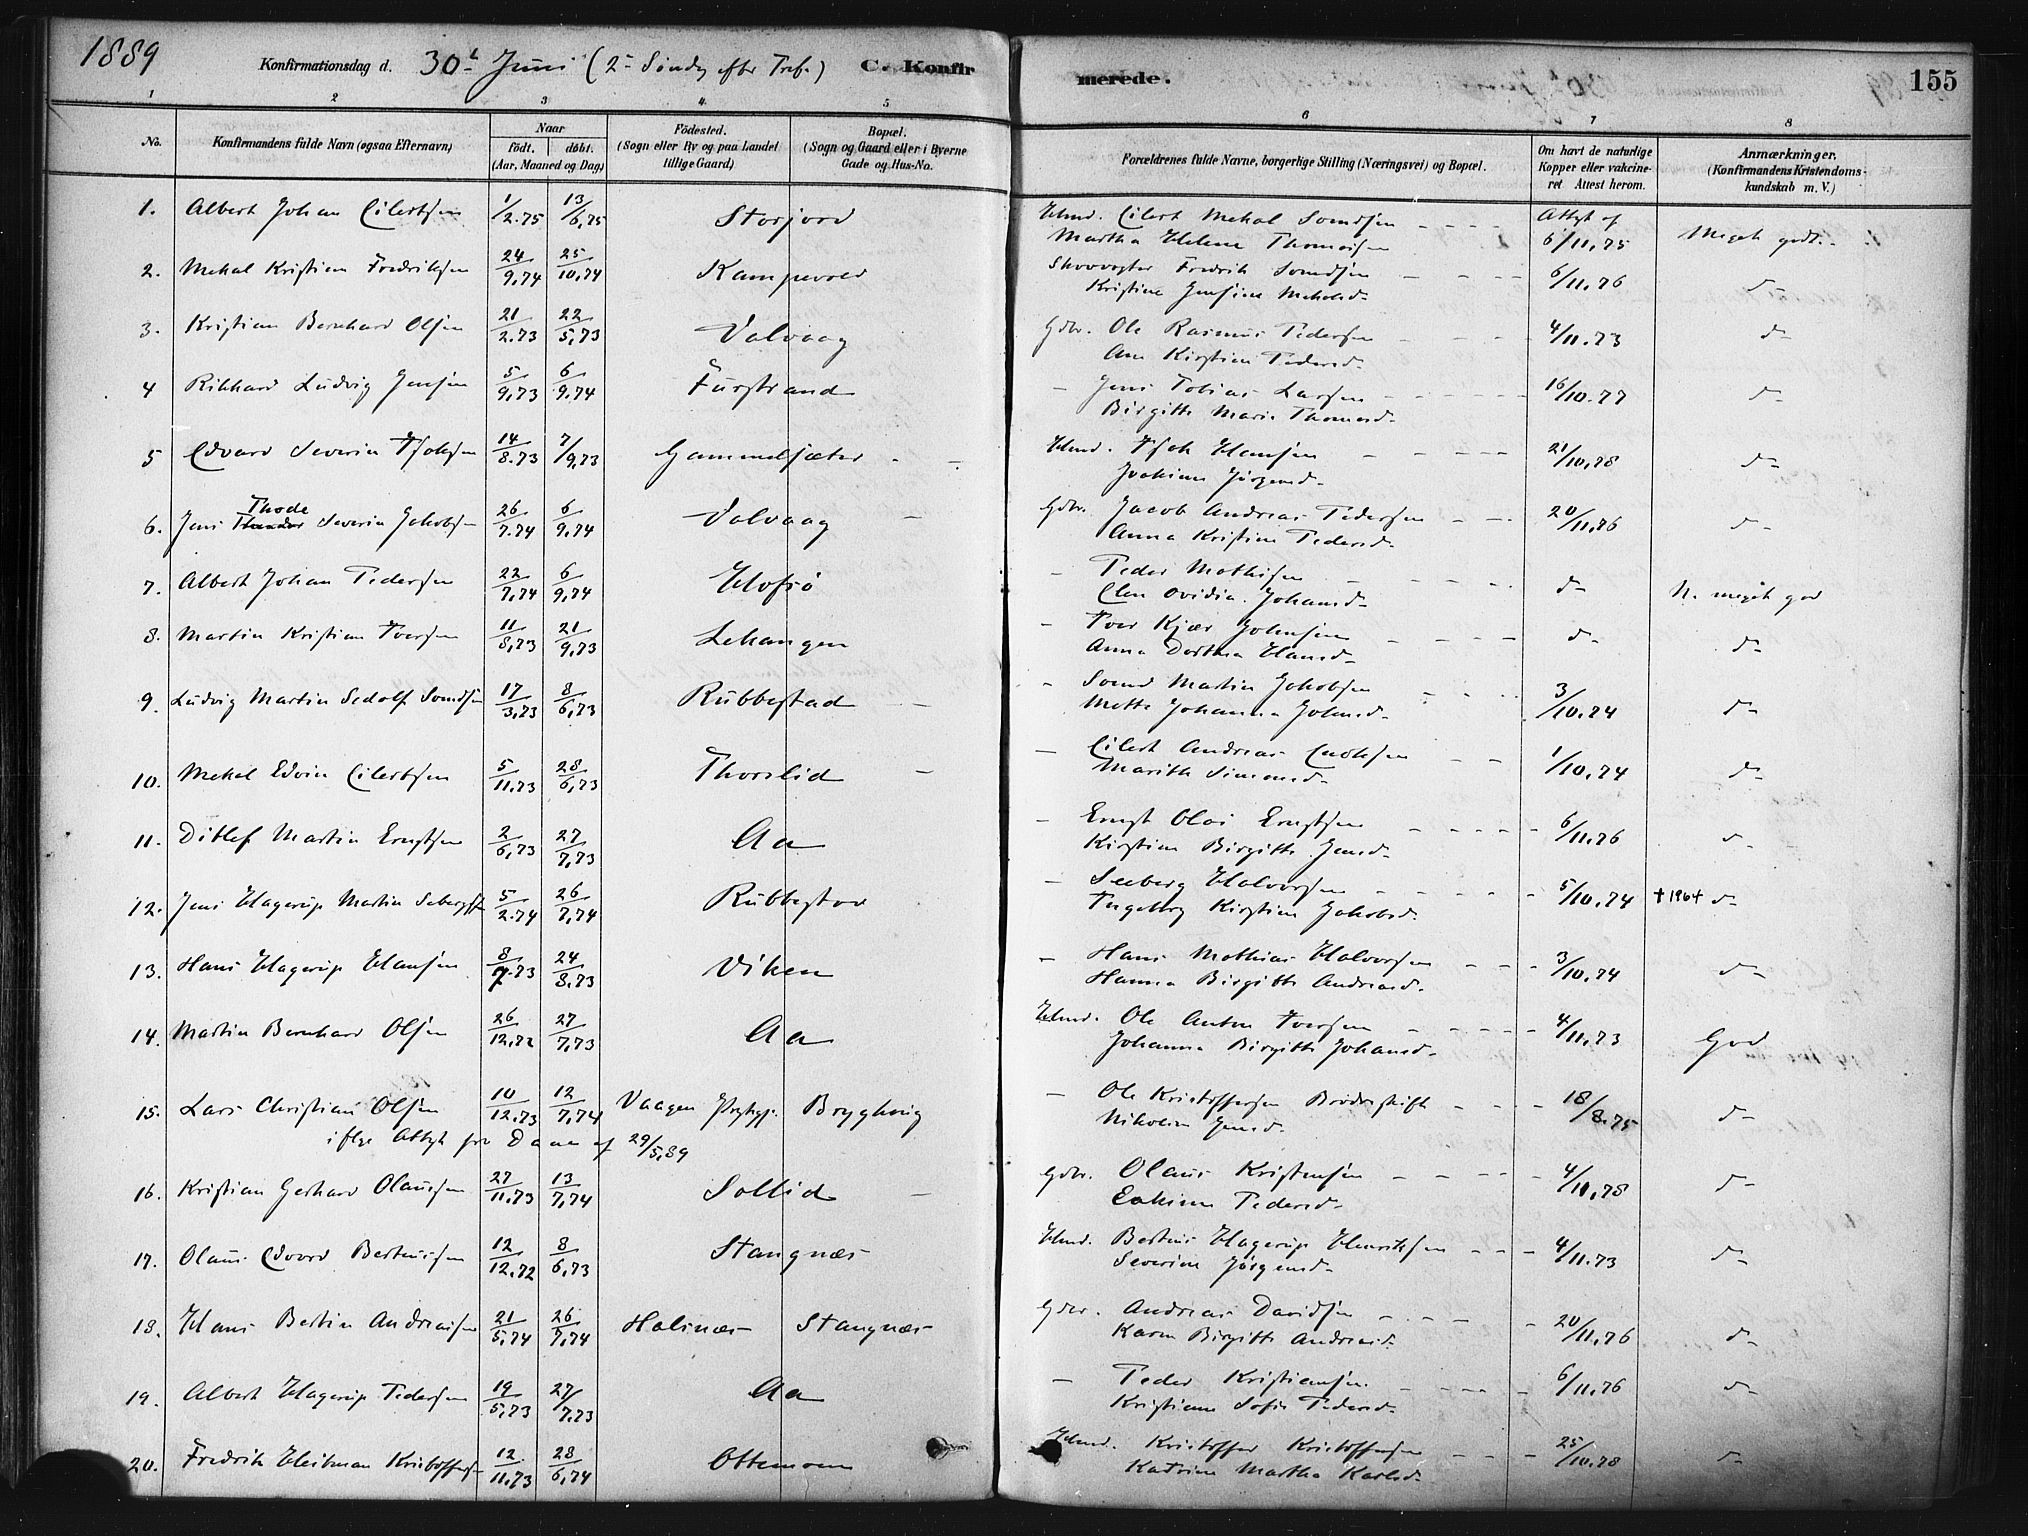 1889 Konfirmationsdag d. 30t Juni (2- Söndg efter Tref.) C. Konfirmerede. 155
1 2 3 4. 5 6 7 8
No. Konfirmandens fulde Navn (ogsaa Efternavn) Naar födt. döbt. (Aar, Maaned og Dag) Födested. (Sogn eller By og paa Landet tillige Gaard) Bopæl. (Sogn og Gaard eller i Byerne Gade og Hus-No. Forældrenes fulde Navne, borgerlige Stilling (Næringsvei) og Bopæl. Om havt de naturlige Kopper eller vakcineret Attest herom. Anmærkninger. (Konfirmandens Kristendomskundskab m. V.)
1. Albert Johan Eilertsen 1/2.75 13/6,75 Storjord Hmd. Eilert Mekal Svendsen Attest af
Martha Helene Thomasen 6/11,75 Meget godt.
2. Mekal Kristian Fredriksen 24/9,74 25/10,74 Kampevold Skovvogter Fredrik Svendsen 6/11.76 d-
Kristine Jensine Mekalsd-
3. Kristian Bernhard Olsen 21/2.73 22/5,73 Valvaag Gdbr. Ole Rasmus Pedersen 4/11.73 d-
Ane Kirstine Pedersd-
4 Rikhard Ludvig Jensen 5/9,73 6/9.74 Furstrand - Jens Tobias Larsen 16/10.77 d-
Birgitte Marie Thomasd-
5 Edvard Severin Isaksen 14/8.73 7/9,73 Gammelsæter Hmd. Isak Hansen 21/10,78 d-
Joakime Jörgensd-
6. Jens Thode Severin Jakobs- 26/7.74 6/9,74 Valvaag Gdbr. Jacob Andreas Pedersen 20/11.76 d-
Anna Kristine Pedersd-
7. Albert Johan Pedersen 22/7,74 6/9,74 Hofsö - Peder Mathisen d- N. meget god
Elen Ovidia Johansd-
8. Martin Kristian Iversen 11/8,73 21/9,73 Lekangen - Iver Kjær Johnsen d- d-
Anna Dorthea Hansd-
9. Ludvig Martin Sedolf Svendsen 17/3,73 8/6,73 Rubbestad - Svend Martin Jakobsen 3/10.74 d-
Mette Johanna Johnsd-
10. Mekal Edvin Eilertsen 5/11.73 28/6,73 Thorslid - Eilert Andreas Enoksen 1/10,74 d-
Marith Simonsd-
11. Ditlef Martin Ernstsen 2/6,73 27/7,73 Aa - Ernst Olai Ernstsen 6/11.76 d-
Kirstine Birgitte Jensd-
12. Jens Hagerup Martin Sebergs- 5/2.74 26/7,74 Rubbestad - Seeberg Halvorsen 5/10.74 †1964 d-
Ingebrg Kirstine Jakobsd-
13. Hans Hagerup Hansen 8/7.73 24/8.73 Viken - Hans Mathias Halvorsen 3/10.74 d-
Hanna Birgitte Andreasd.
14. Martin Bernhard Olsen 26/12.72 27/7,73 Aa Hmd. Ole Anton Iversen 4/11.73 God
Johanna Birgitte Johansd-
15. Lars Christian Olsen 10/12.73 12/7,74 Vaagen Prstgj. Bryghaug - Ole Kristoffersen Brödreskift 18/8.75 d-
iflge Attest fra D a n a af 29/5.89 Nikoline Jensd-
16. Kristian Gerhard Olaussen 27/11,73 13/7,74 Sollid Gdbr. Olaus Kristensen 4/11,78 d-
Eakine Pedersd-
17. Olaus Edvard Berteussen 12/12.72 8/6,73 Stangnæs Hmd. Berteus Hagerup Henriksen 4/11.73 d-
Severine Jörgensd-
18. Hans Bertin Andreassen 21/5,74 26/7,74 Halsnæs Stangnæs Gdbr. Andreas Davidsen 20/11,76 d-
Karen Birgitte Andreasd-
19. Albert Hagerup Pedersen 19/5,73 27/7.73 Aa - Peder Kristiansen 6/11.76 d-
Kristiane Sofie Pedersd-
20. Fredrik Heitman Kristoffers- 12/11,73 28/6,74 Ottemoen Hmd. Kristoffer Kristoffersen 25/10.78 d-
Katrine Martha Karlsd-